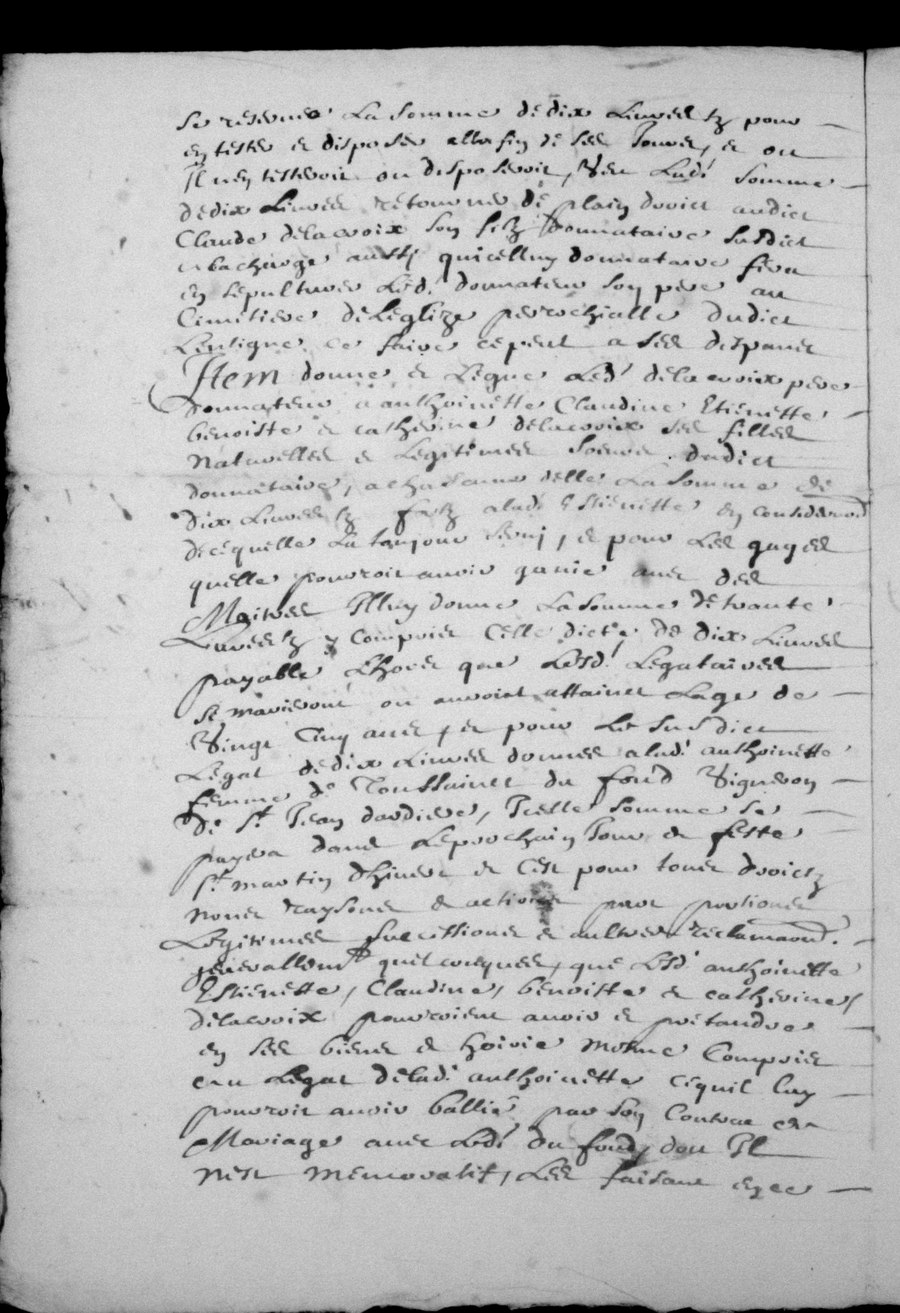 se reserve La somme de dix Livres tz pour
en tester et disposer a la fin de ses Jours, et ou
Il n'en testeroit ou disposeroit, Veu Lad. somme
de dix Livres retourner de plain droict audict
Claude delacroix son filz donnataire susdict
et a la charge aussi quicelluy donnataire fera
en sepulturer Led. donnateur son pere au
Cimetiere de Leglize perrochialle dudict
Lentigne ce faire ce peut a ses despans
Item donne et Legue Led. delacroix pere
donnateur a anthoinette Claudine Etienette
benoiste et catherine delacroix ses filles
naturelles et Legitimes soeurs dudict
donnataire, a chascune delle La somme de
dix Livres tz fortz a lad. Estienette en considera͞on
de ce quelle La toujour servj, et pour Les gages
quelle pourroit avoir ganie avec des
Maitres Illuy donne La somme de trante
Livres tz y compris Celle dicte de dix Livres
payable Lhors que Lesd. Legataires
se marieront ou auront attainct Lage de
Vingt Cinq ans, et pour Le susdict
Legat de dix Livres donnes a lad. anthoinette
femme de Toussainct du fond Vigneron
de St Jean dardiere, Icelle somme se
payera dans Le prochain Jour et feste
St martin dhivert et Cest pour tous droictz
noms raysons et actions part portions
Legitimes successions et aultres reclama͞ons
generallemt quelconques, que Lesd. anthoinette
Estienette, Claudine, benoitte et catherine,
delacroix pourroient avoir et pretandre
en ses biens et hoirie mesme Compris
au Legat de lad. anthoinette ce quil luy
pourroit avoir ballié par son Contrat de
Mariage avec Led. du fond, dou Il
nest memoratif, Les faisant en ce